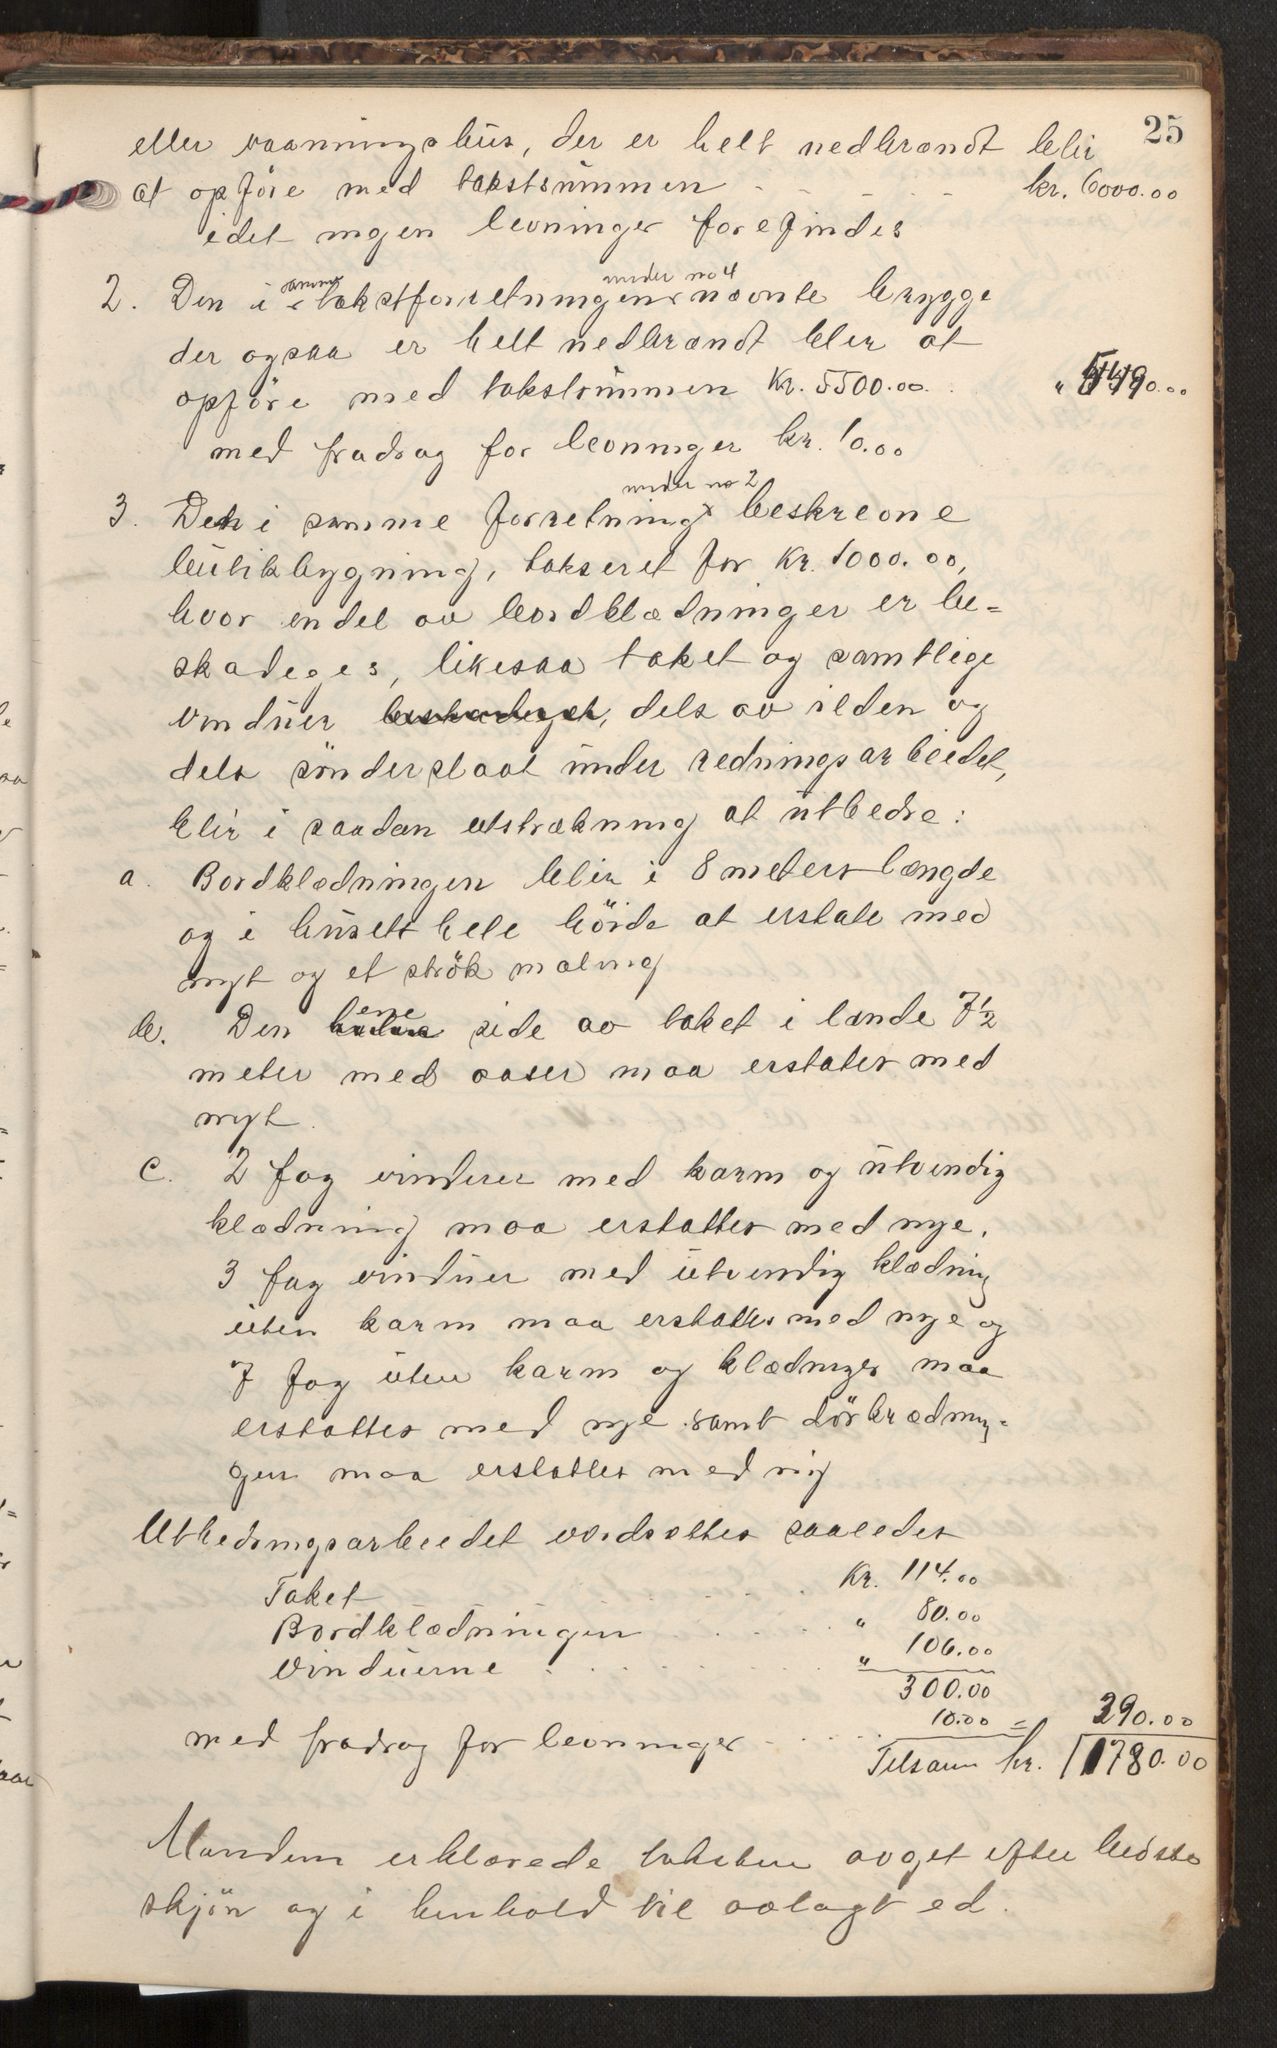 25
eller vaaningshus, der er helt nedbrændt blir
at opføre med takstsummen - - - - kr. 6000.00
idet ingen levninger forefindes
2. Den i samme takstforretningen under no 4 nævnte brygge
der ogsaa er helt nedbrændt blir at
opføre med takstsummen Kr. 5500.00 . " 5490.00
med fradrag for levninger kr. 10.00
3. Den i samme forretning under no 2 beskrevne
butikbygning, takseret for Kr. 1000.00,
hvor endel av bordklædninger er be=
skadeges, likesaa taket og samtlige
vinduer beskadiget, dels av ilden og
dels sönderslaat under redningsarbeidet,
blir i saadan utstrækning at utbedre:
a. Bordklædningen blir i 8 meters længde
og i husets hele höide at erstate med
nyt og et strök maling
b. Den ene side av taket i lænde 7½
meter med aaser maa erstates med
nyt.
c. 2 fag vinduer med karm og utvendig
klædning maa erstattes med nye.
3 fag vinduer med utvendig klædning
uten karm maa erstattes med nye og
7 fag uten karm og klædninger maa
erstattes med nye samt dörkrædnin=
gen maa erstattes med ny
Utbedringsarbeidet værdsættes saaledes
Taket . . . Kr. 114.00
Bordklædningen . . . . " 80.00
Vinduerne . . . . . " 106.00
300.00
med fradrag for levninger - . . . 10.00 = 290.00
Tilsam kr. 11780.00
Manden erklærede taksten avget efter bedste
skjön og i henhold til avlagt ed.